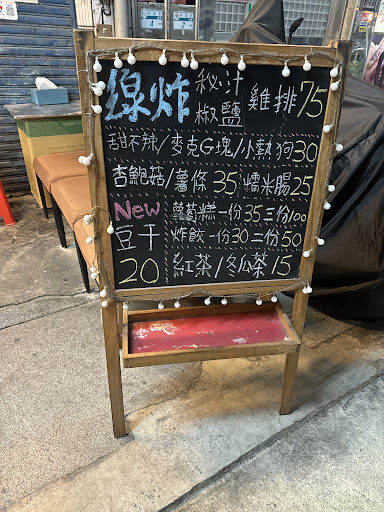 線炸 秘汁 椒鹽 雞排 75
甜不辣/麥克G塊/小熱狗30
杏鮑菇/薯條 35 糯米腸25
New 蘿蔔糕一份35三份100
豆干 炸餃一份30二份50
20 紅茶/冬瓜茶15